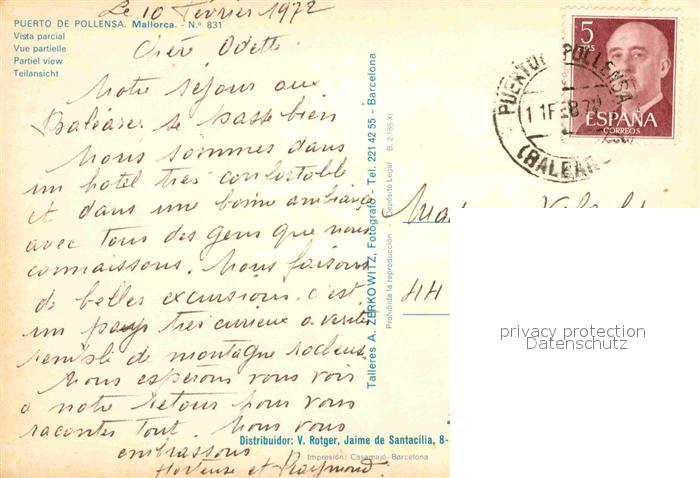 Le 10 Février 1972
PUERTO DE POLLENSA. Mallorca. - N.º 831
Vista parcial
Vue partielle
Partiel view
Teilansicht
Chère Odette
Notre séjour aux
Baléares se passe bien
Nous sommes dans
un hotel très confortable
et dans une bonne ambiance
avec tous des gens que nous
connaissons. Nous faisons
de belles excursions. c'est
un pays très curieux a visiter
rempli de montagne rocheuse
Nous espérons vous voir
a notre retour pour vous
raconter tout. Nous vous
embrassons
Hortense et Raymond
Talleres A. ZERKOWITZ, Fotógrafo - Tel. 221 42 55 - Barcelona
Prohibida la reproducción - Depósito Legal B. 2.188-XI
Distribuidor: V. Rotger, Jaime de Santacilia, 8-
Impresión: Casamajó - Barcelona
5
PTAS
ESPAÑA
CORREOS
PUERTO POLLENSA
11 FEB 72
(BALEARES)
44
privacy protection
Datenschutz